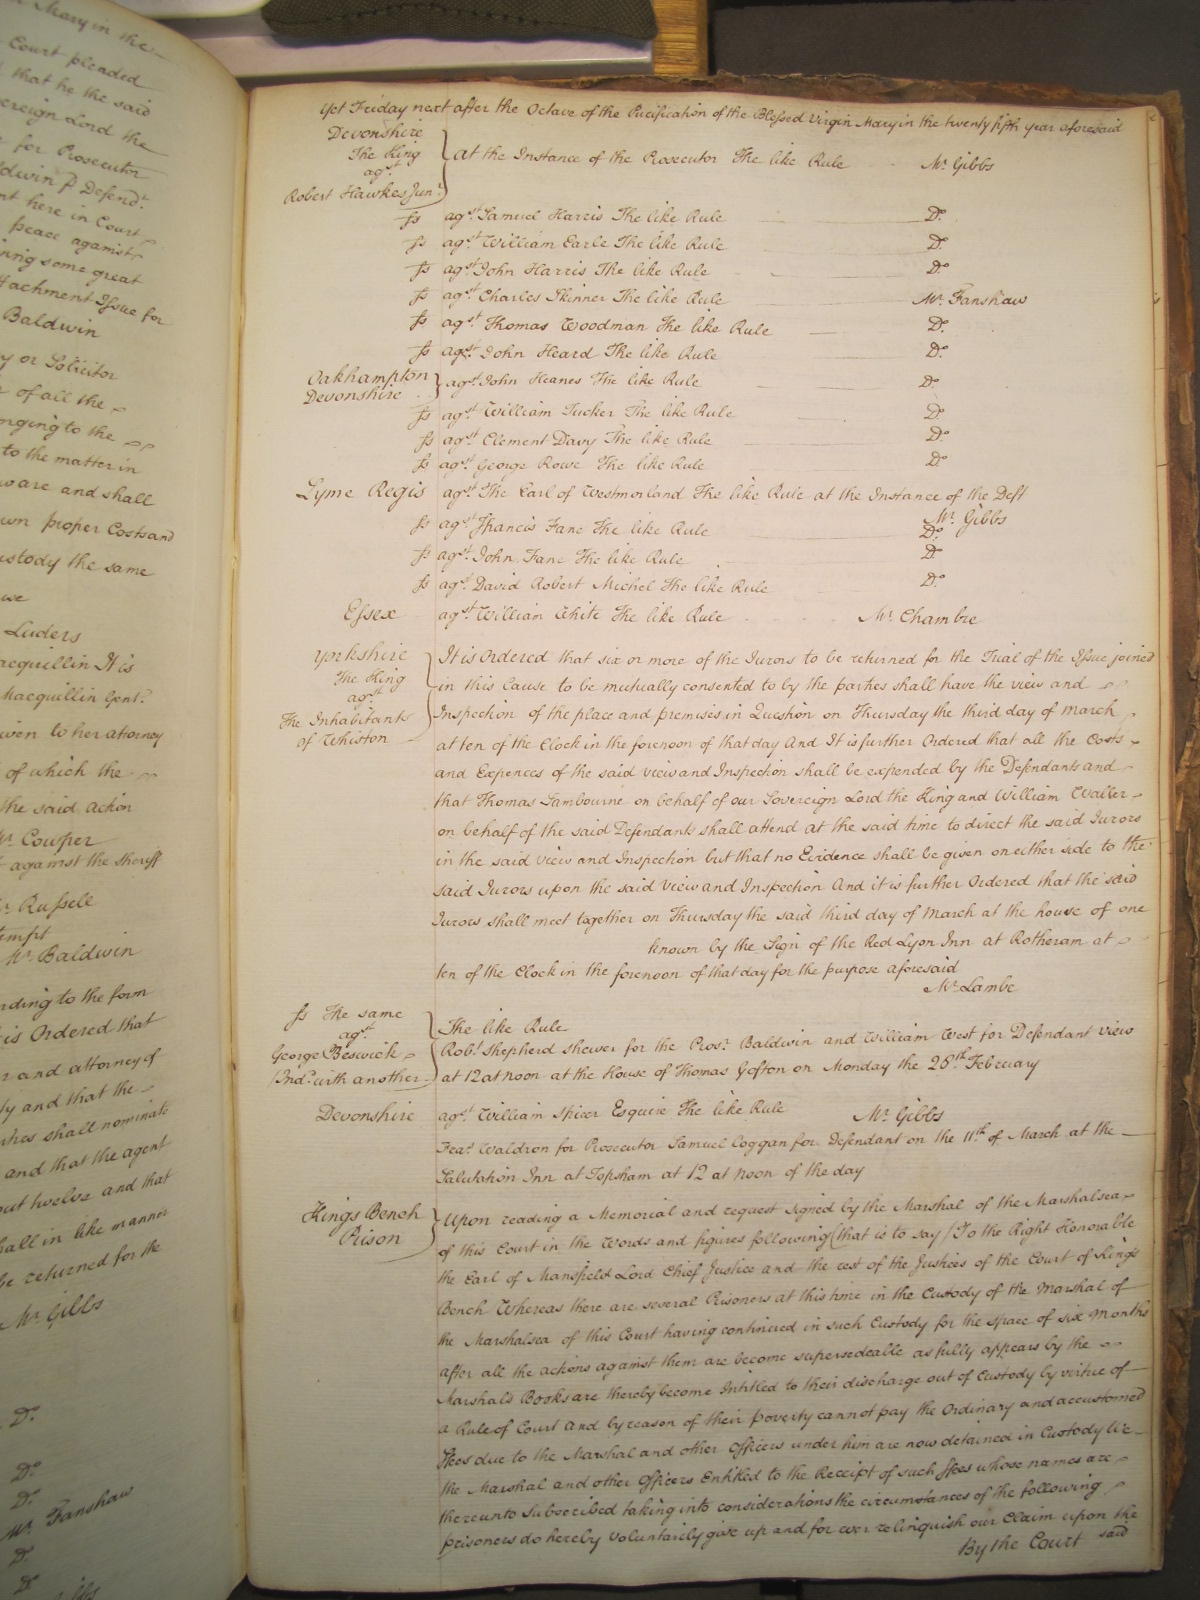 Mary in the
Court pleaded
that he the said
Sovereign Lord the
for Prosecutor
Baldwin P Defend.t
here in Court
peace against
some great
Attachment Issue for
Baldwin
or Solicitor
of all the
belonging to the
to the matter in
aware and shall
own proper Costs and
Custody the same
Luders
Macquillin It is
Macquillin Gent.
given to her attorney
of which the
the said action
Mr. Cowper
against the Sheriff
Mr. Russell
Contempt
Mr. Baldwin
according to the form
It is Ordered that
and attorney of
and that the
shall nominate
and that the agent
out twelve and that
shall in like manner
be returned for the
Mr. Gibbs
Do.
Do.
Do.
Mr. Fanshaw
Do.
Do.
Yet Friday next after the Octave of the Purification of the Blessed Virgin Mary in the twenty fifth year aforesaid
Devonshire
The King
agst.
Robert Hawkes Junr.
at the Instance of the Prosecutor The like Rule Mr. Gibbs
fs agst. Samuel Harris The like Rule Do.
fs agst. William Earle The like Rule Do.
fs agst. John Harris The like Rule Do.
fs agst. Charles Skinner The like Rule Mr. Fanshaw
fs agst. Thomas Woodman The like Rule Do.
fs agst. John Heard The like Rule Do.
Oakhampton
Devonshire
agst. John Heanes The like Rule Do.
fs agst. William Tucker The like Rule Do.
fs agst. Clement Davy The like Rule Do.
fs agst. George Rowe The like Rule Do.
Lyme Regis agst. The Earl of Westmorland The like Rule at the Instance of the Deft
Mr. Gibbs
fs agst. Francis Fane The like Rule Do.
fs agst. John Fane The like Rule Do.
fs agst. David Robert Michel The like Rule Do.
Essex agst. William White The like Rule Mr. Chambre
Yorkshire
The King
agst.
The Inhabitants
of Whiston
It is Ordered that six or more of the Jurors to be returned for the Trial of the Issue joined
in this Cause to be mutually consented to by the parties shall have the view and
Inspection of the place and premises in Question on Thursday the third day of March
at ten of the Clock in the forenoon of that day And It is further Ordered that all the Costs
and Expences of the said view and Inspection shall be expended by the Defendants and
that Thomas Sambourne on behalf of our Sovereign Lord the King and William Waller
on behalf of the said Defendants shall attend at the said time to direct the said Jurors
in the said view and Inspection but that no Evidence shall be given on either side to the
said Jurors upon the said View and Inspection And it is further Ordered that the said
Jurors shall meet together on Thursday the said third day of March at the house of one
known by the Sign of the Red Lyon Inn at Rotheram at
ten of the Clock in the forenoon of that day for the purpose aforesaid
Mr. Lambe
fs The same
agst.
George Beswick
Ind. with another
The like Rule
Robt. Shepherd shewer for the Prosr. Baldwin and William West for Defendant view
at 12 at noon at the House of Thomas on Monday the 28th. February
Devonshire agst. William Spicer Esquire The like Rule Mr. Gibbs
Waldron for Prosecutor Samuel Coggan for Defendant on the 11th. of March at the
Salutation Inn at Topsham at 12 at noon of the day
Kings Bench
Prison
Upon reading a Memorial and request signed by the Marshal of the Marshalsea
of this Court in the Words and figures following (that is to say) To the Right Honorable
the Earl of Mansfield Lord Chief Justice and the rest of the Justices of the Court of Kings
Bench Whereas there are several Prisoners at this time in the Custody of the Marshal of
the Marshalsea of this Court having continued in such Custody for the space of six Months
after all the actions against them are become supersedeable as fully appears by the
Marshals Books are thereby become Intitled to their discharge out of Custody by virtue of
a Rule of Court and by reason of their poverty cannot pay the Ordinary and accustomed
ffees due to the Marshal and other Officers under him are now detained in Custody We
the Marshal and other Officers Entitled to the Receipt of such ffees whose names are
thereunto Subscribed taking into considerations the circumstances of the following
prisoners do hereby voluntarily give up and for ever relinquish our Claim upon the
said
By the Court